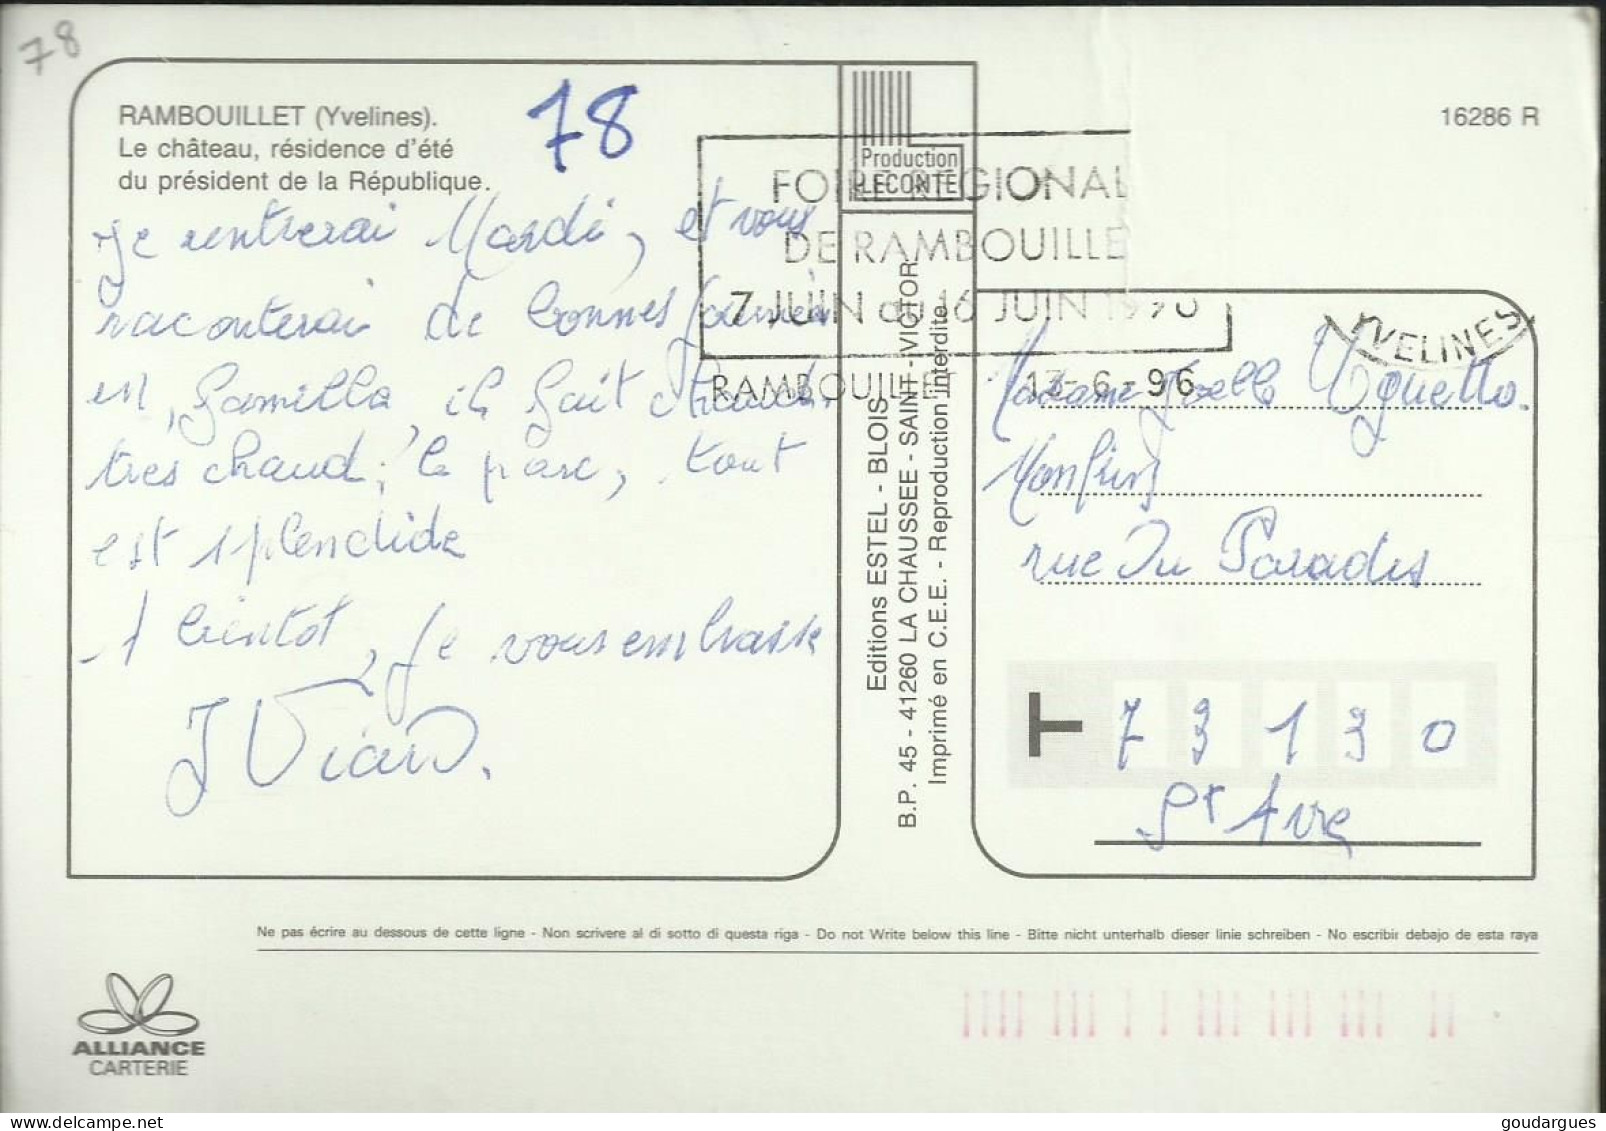 78
RAMBOUILLET (Yvelines).
Le château, résidence d'été
du président de la République.
78
16286 R
Production
LECONTE
FOIRE REGIONAL
DE RAMBOUILLE
7 JUIN au 16 JUIN 1996
RAMBOUILLET
13-6-96
YVELINES
Je rentrerai Mardi, et vous
raconterai de bonnes journées
en famille, il fait chaud
tres chaud, le parc, tout
est splendide
A bientot, je vous embrasse
J Viard.
Editions ESTEL - BLOIS
B.P. 45 - 41260 LA CHAUSSEE - SAINT-VICTOR
Imprimé en C.E.E. - Reproduction interdite
Madame
rue du Paradis
T 73130
St Avre
Ne pas écrire au dessous de cette ligne - Non scrivere al di sotto di questa riga - Do not Write below this line - Bitte nicht unterhalb dieser linie schreiben - No escribir debajo de esta raya
ALLIANCE
CARTERIE
goudargues